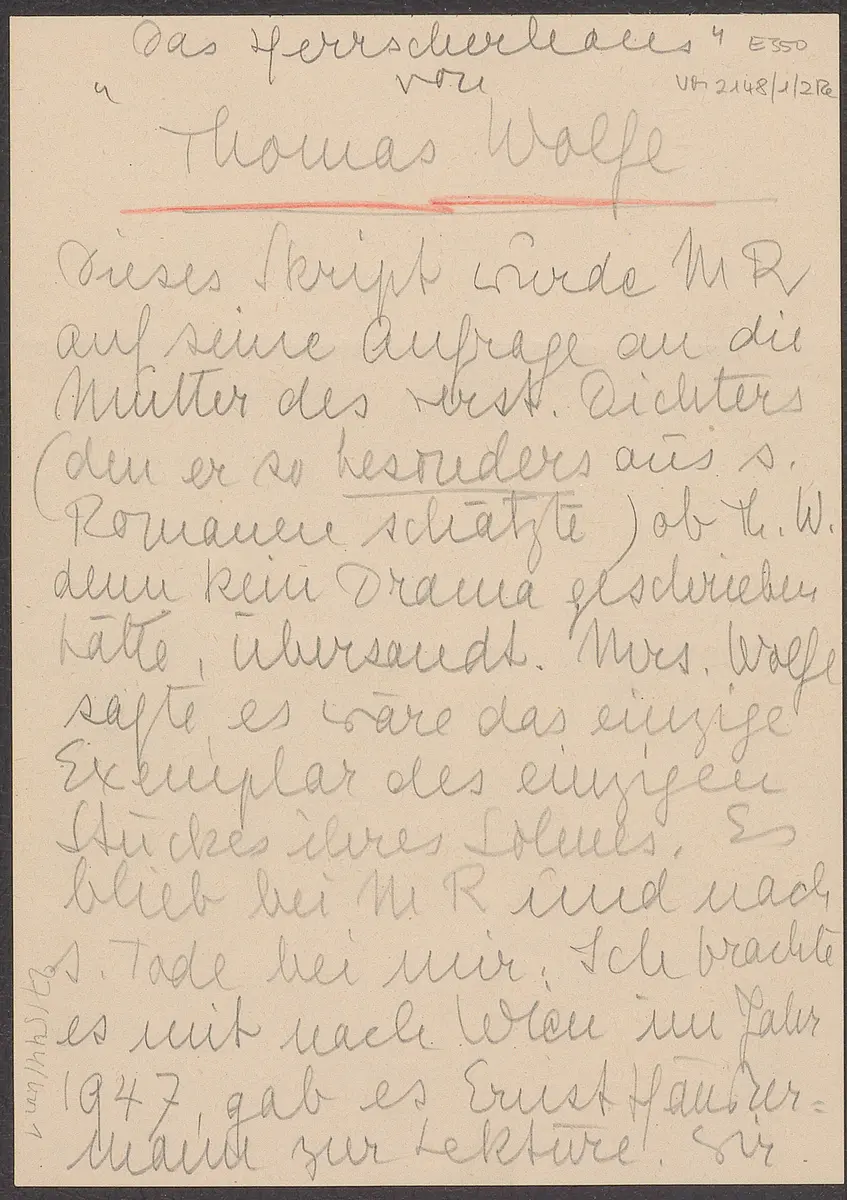 "Das Herrscherhaus" E350
von VM 2148/1/2Re
Thomas Wolfe
Dieses Skript wurde M R
auf seine Anfrage an die
Mutter des verst. Dichters
(den er so besonders aus s.
Romanen schätzte) ob Th. W.
denn kein Drama geschrieben
hätte, übersandt. Mrs. Wolfe
sagte es wäre das einzige
Exemplar des einzigen
Stückes ihres Sohnes. Es
blieb bei M R und nach
s. Tode bei mir. Ich brachte
es mit nach Wien im Jahr
1947, gab es Ernst Häusser=
mann zur Lektüre. Wir